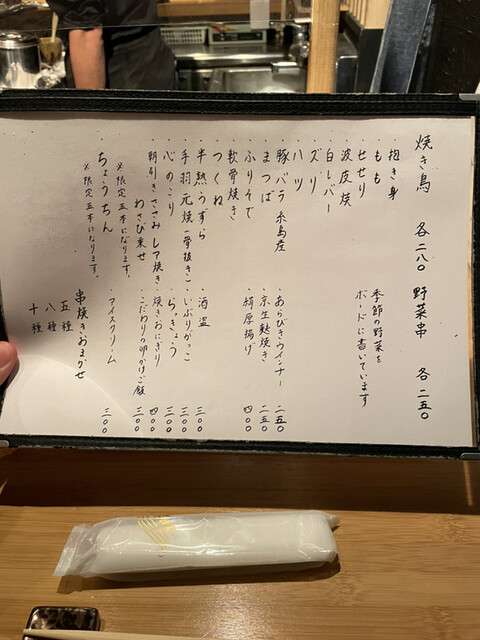 焼き鳥 各二八〇
・抱き身
・もも
・せせり
・波皮焼
・白レバー
・ズリ
・ハツ
・豚バラ 糸島産
・まつば
・ふりそで
・軟骨焼き
・つくね
・半熟うずら
・手羽元焼(骨抜き)
・心のこり
・朝引きささみレア焼き
わさび乗せ
※限定五本になります。
・ちょうちん
※限定五本になります。
野菜串 各二五〇
季節の野菜を
ボードに書いています
・あらびきウインナー 二五〇
・京生麩焼き 二五〇
・栃尾揚げ 四〇〇
・酒盗 三〇〇
・いぶりがっこ 三〇〇
・らっきょう 三〇〇
・焼きおにぎり 四〇〇
・こだわりの卵かけご飯 三〇〇
・アイスクリーム 三〇〇
串焼きおまかせ
五種
八種
十種